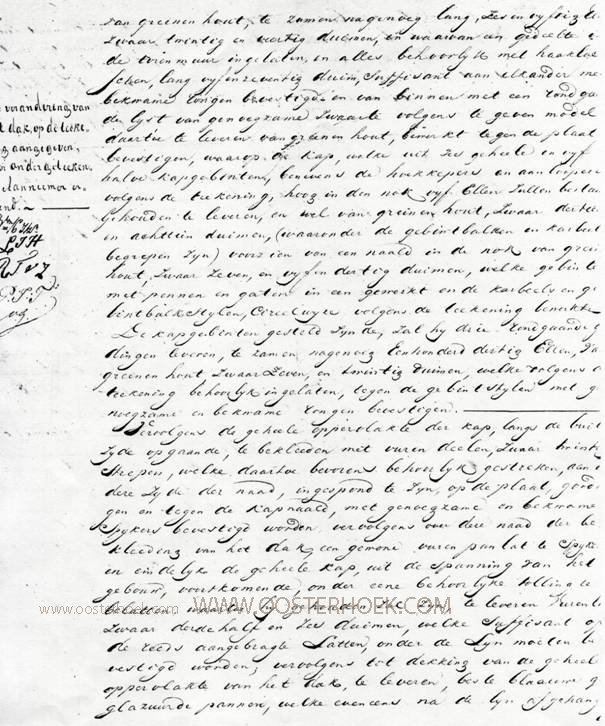 van greenen hout, te zamen nagenoeg lang, zes en vyftig El
zwaar, twintig en veertig duimen, en waarvan een gedeelte
de toren muur ingelaten, en alles behoorlyk met haaklas
schen, lang vyf en zeventig duim, suffisant aan elkander me
bekwame tongen bevestigd en van binnen met een rond ga
de lyst van genoegzame zwaarte volgens te geven model
daartoe te leveren van greenen hout, bewerkt tegen de plaat
bevestigen, waarop de kap, welke uit zes geheele en vyf
halve kapgebinten, benevens de hoekkepers en aanloopers
volgens de teekening, hoog in den nok vyf Ellen zullen bestaan
gehouden te leveren, en wel van greinen hout, zwaar dertien
en achttien duimen, (waaronder de gebintbalken en karbeels
begrepen zyn) voorzien van een naald in de nok van grei
hout, zwaar zeven, en vyf en dertig duimen, welke gebinte
met pennen en gaten in een gewerkt en de karbeels en ge
bintbalk stylen, volgens de teekening bewerkt
De kapgebinten gesteld zynde, zal hy drie rondgaande g
dingen leveren, te zamen nagenoeg Eenhonderd dertig Ellen, va
greenen hout zwaar zeven, en twintig duimen, welke volgens d
teekening behoorlyk ingelaten, tegen de gebint stylen met g
noegzame en bekwame tongen bevestigen.
Vervolgens de geheele oppervlakte der kap, langs de buit
zyde opgaande, te bekleeden met vuren deelen, zwaar
strepen, welke daartoe bevorens behoorlyk gestreken, aan
dere zyde der naad, ingespond te zyn, op de plaat, gord
gen en tegen de kapnaald, met genoegzame en bekwame
spykers bevestigd worden vervolgens over dere naad der be
kleeding van het dak een gewone vuren panlat te spyke
en eindelyk de geheele kap, uit de spanning van het
gebouw, voorkomende, onder eene behoorlyke
te leveren vuren
zwaar derdehalf en zes duimen, welke suffisant op
de reeds aangebragte Latten, onder de Lyn moeten be
vestigd worden; vervolgens tot dekking van de geheel
oppervlakte van het dak, te leveren, beste Blaauwe g
glazuurde pannen, welke evenens na de lyn afgehang
verandering van
t dak, op de teeke
g aangegeven,
ondergeteeken
Aannemer
L J H
www.oosterhoek.com
WWW.OOSTERHOEK.COM